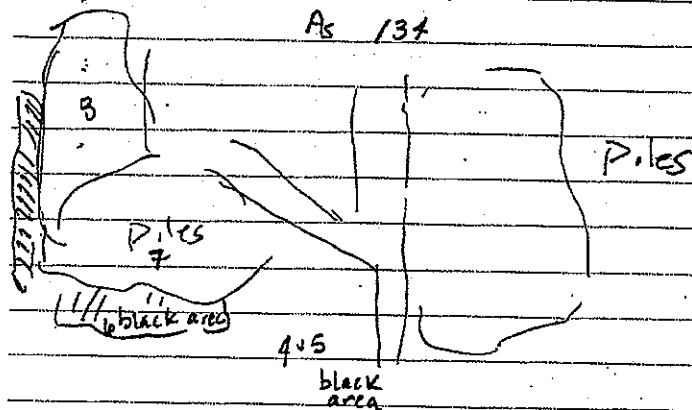 As 134
8
Piles
Piles
7
6 black area
4+5
black
area